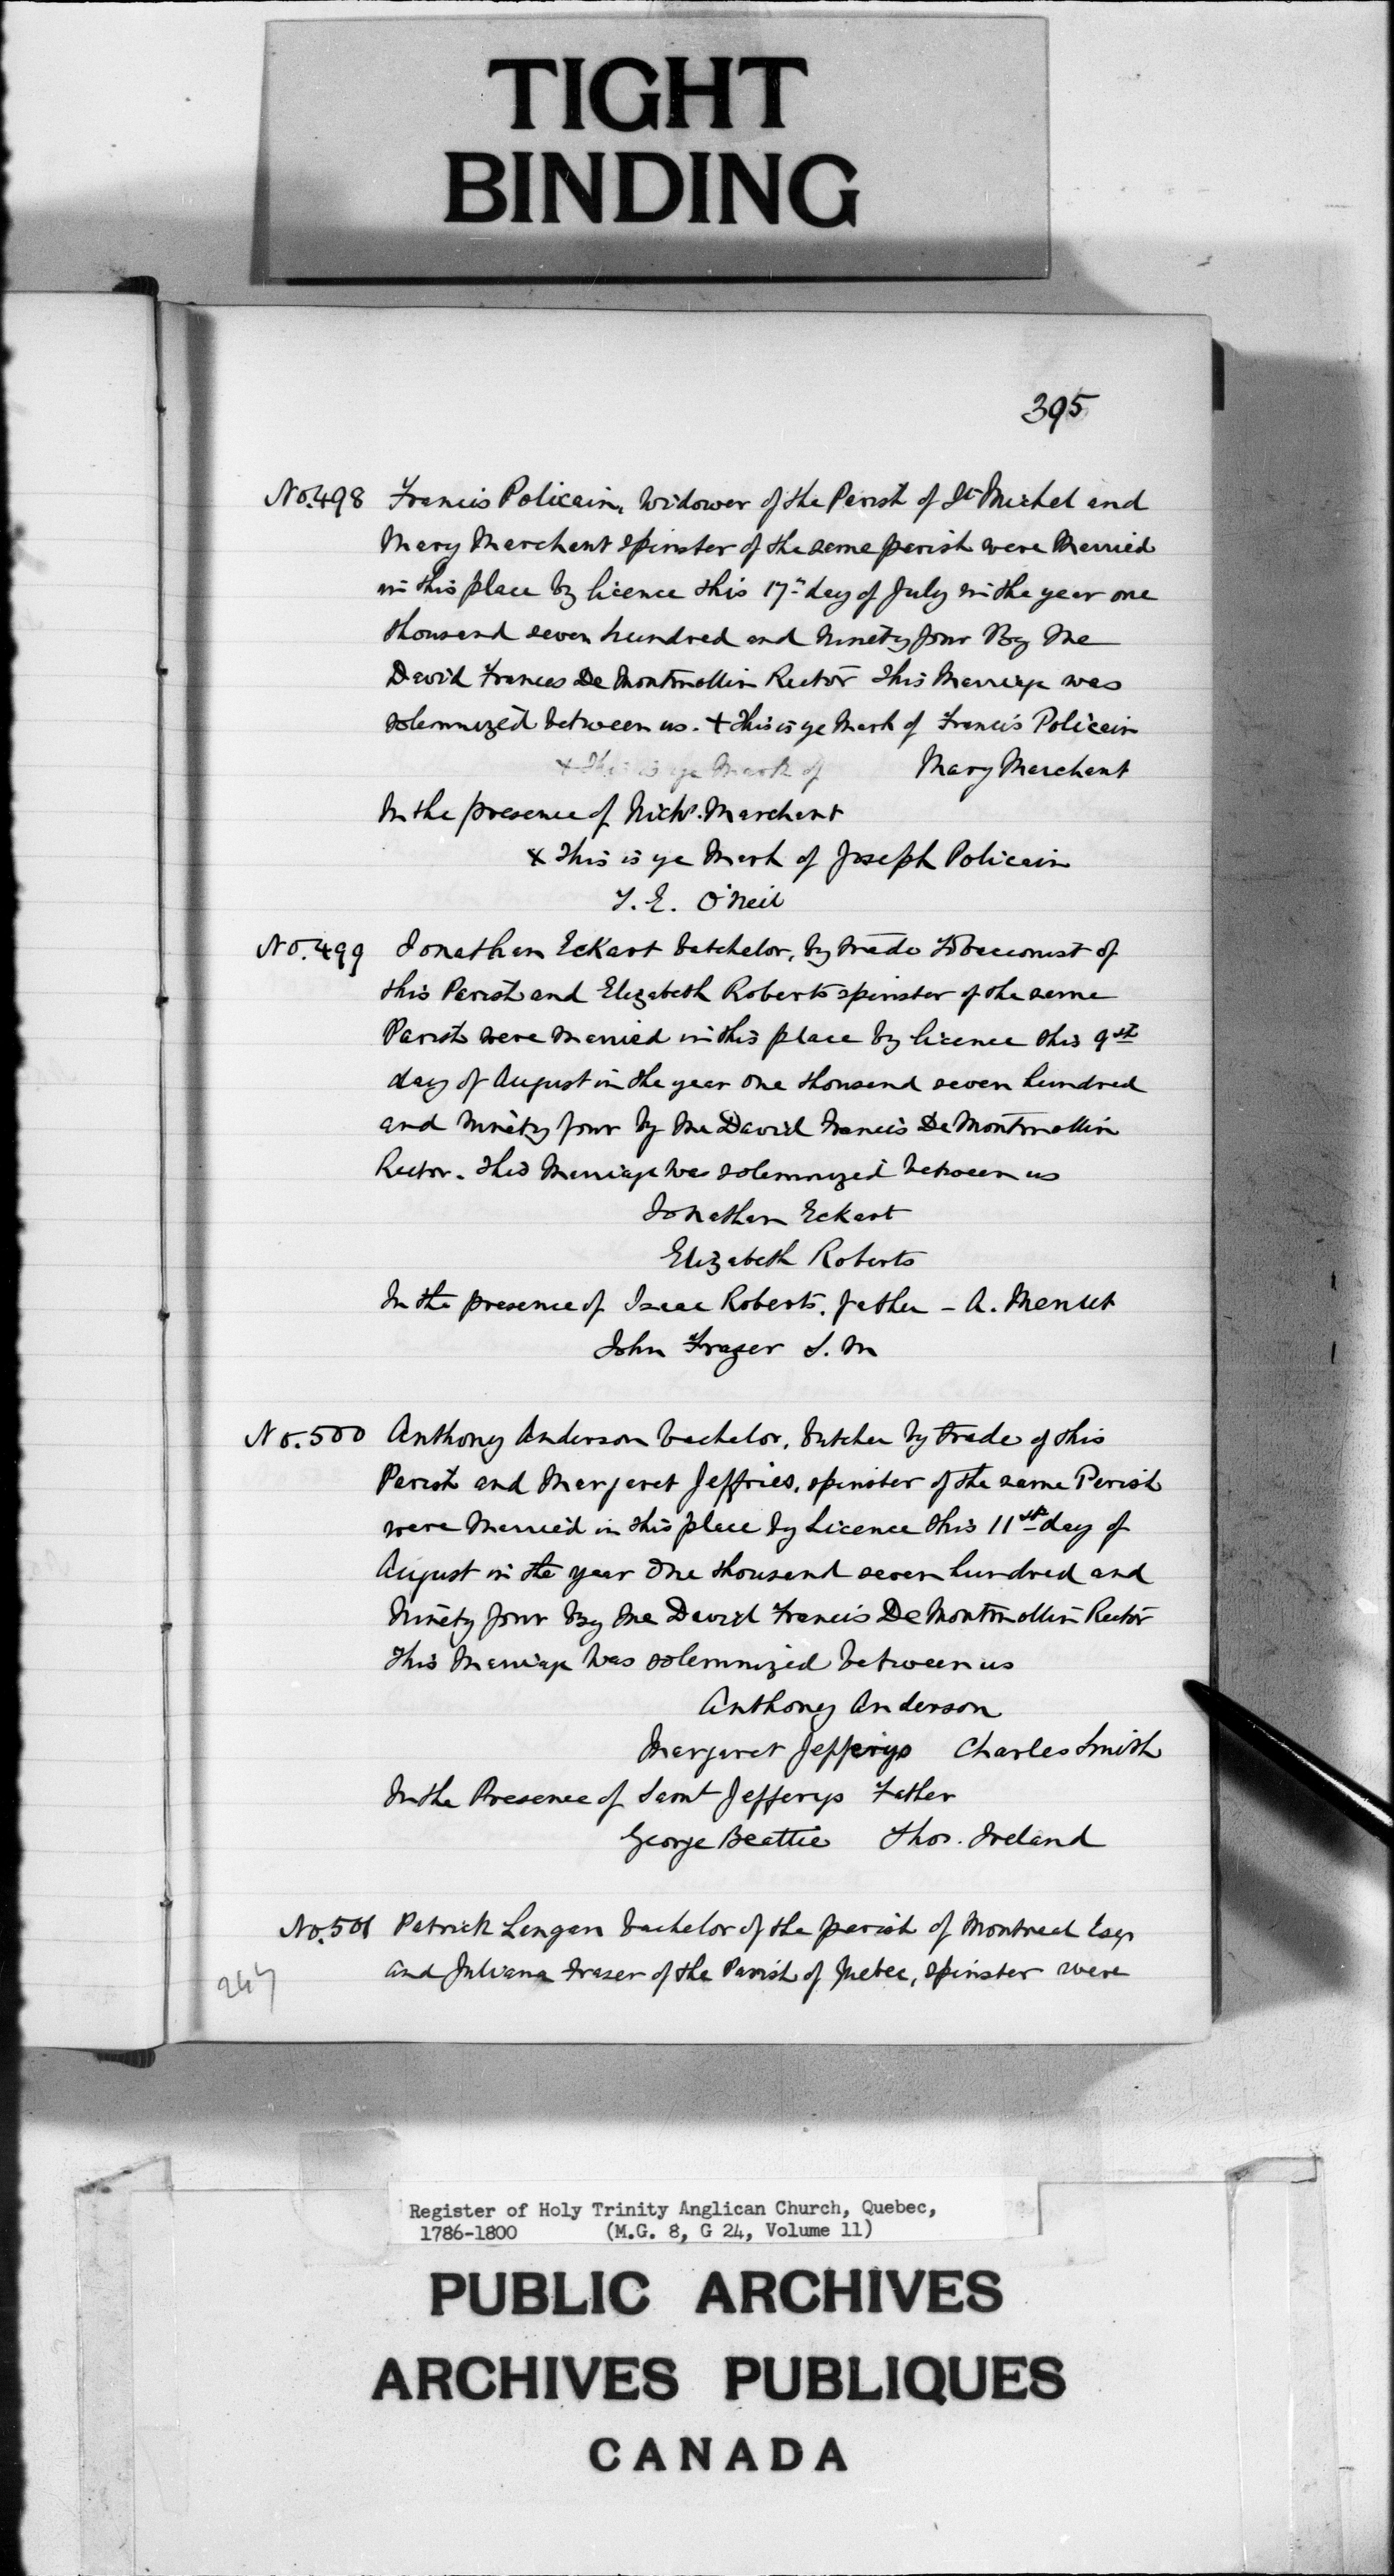 TIGHT
BINDING
395
No. 498 Francis Policain, Widower of the Parish of St. Michel and
Mary Marchant spinster of the same parish were Married
in this place by licence this 17th day of July in the year one
thousand seven hundred and Ninety four By Me
David Frances De Montmollin Rector This Marriage was
solemnized between us. + This is ye Mark of Francis Policain
+ This is ye Mark of Mary Marchant
In the presence of Nichs. Marchant
x This is ye Mark of Joseph Policain
T. E. O'Neil
No. 499 Jonathan Eckart batchelor, by trade Tobacconist of
this Parish and Elizabeth Roberts spinster of the same
Parish were Married in this place by licence this 9th
day of August in the year one thousand seven hundred
and Ninety four by Me David Francis De Montmollin
Rector. This Marriage was solemnized between us
Jonathan Eckart
Elizabeth Roberts
In the presence of Isaac Roberts, father - A. Menut
John Frazer S. M
No. 500 Anthony Anderson bachelor, butcher by trade of this
Parish and Margaret Jeffries, spinster of the same Parish
were Married in this place by Licence this 11th day of
August in the year One thousand seven hundred and
Ninety four By Me David Francis De Montmollin Rector
This Marriage was solemnized between us
Anthony Anderson
Margaret Jefferys Charles Smith
In the Presence of Saml Jefferys Father
George Beattie Thos. Ireland
No. 501 Patrick Langan bachelor of the parish of Montreal Esqr
and Juliana Fraser of the Parish of Quebec, spinster were
247
Register of Holy Trinity Anglican Church, Quebec,
1786-1800 (M.G. 8, G 24, Volume 11)
PUBLIC ARCHIVES
ARCHIVES PUBLIQUES
CANADA